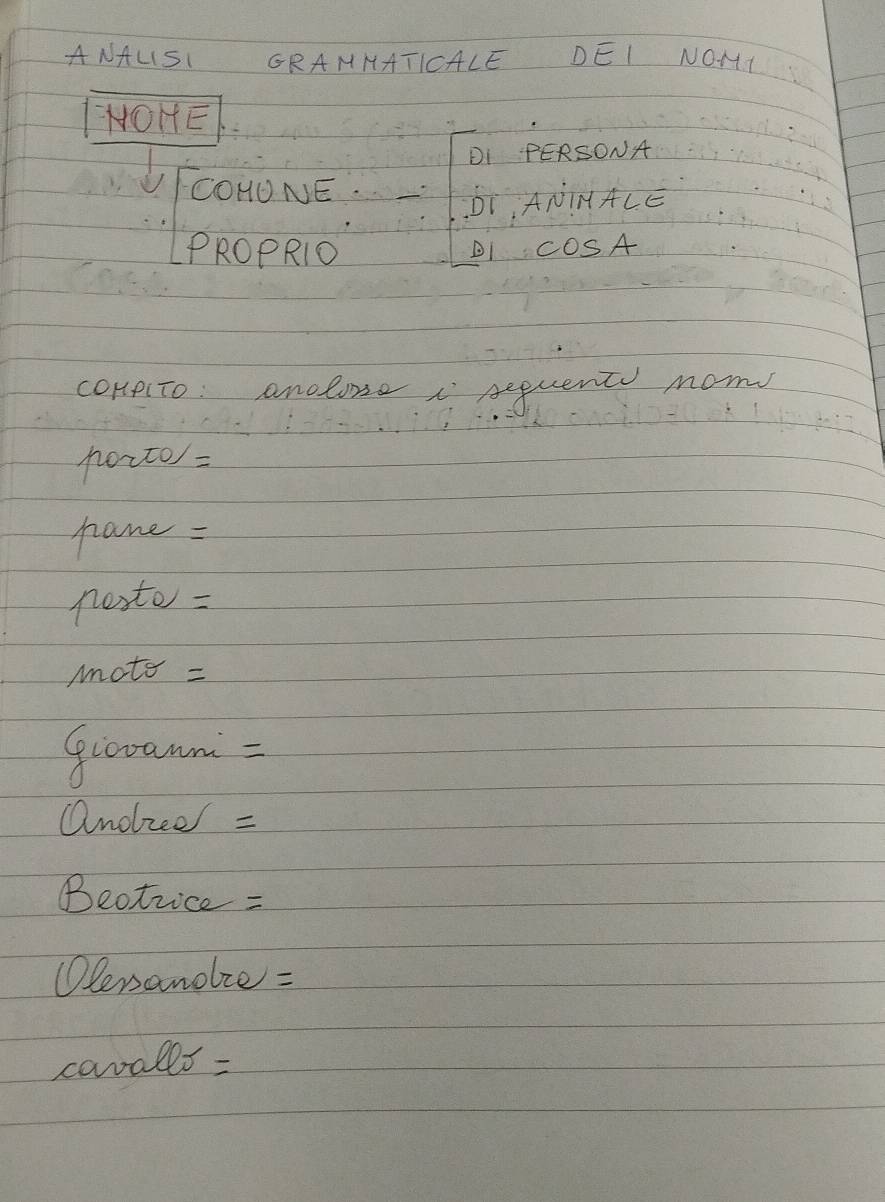 ANALISI GRAMMATICALE DEI NOMI
NOME
COMUNE - DI PERSONA
DI ANIMALE
PROPRIO DI COSA
COMPITO: analizza i seguenti nomi
porta =
pane =
pasta =
moto =
Giovanni =
Andrea =
Beatrice =
Alessandra =
cavallo =